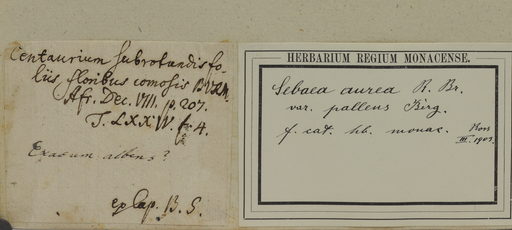 Centaurium subrotundis fo-
liis, floribus comosis
Afr. Dec. VIII. p. 207.
T. LXXIV. f. 4.
Exacum albens?
ex Cap. B. S.
HERBARIUM REGIUM MONACENSE.
Sebaea aurea R. Br.
var. pallens Berg.
f. cat. hb. monac.
III. 1903.